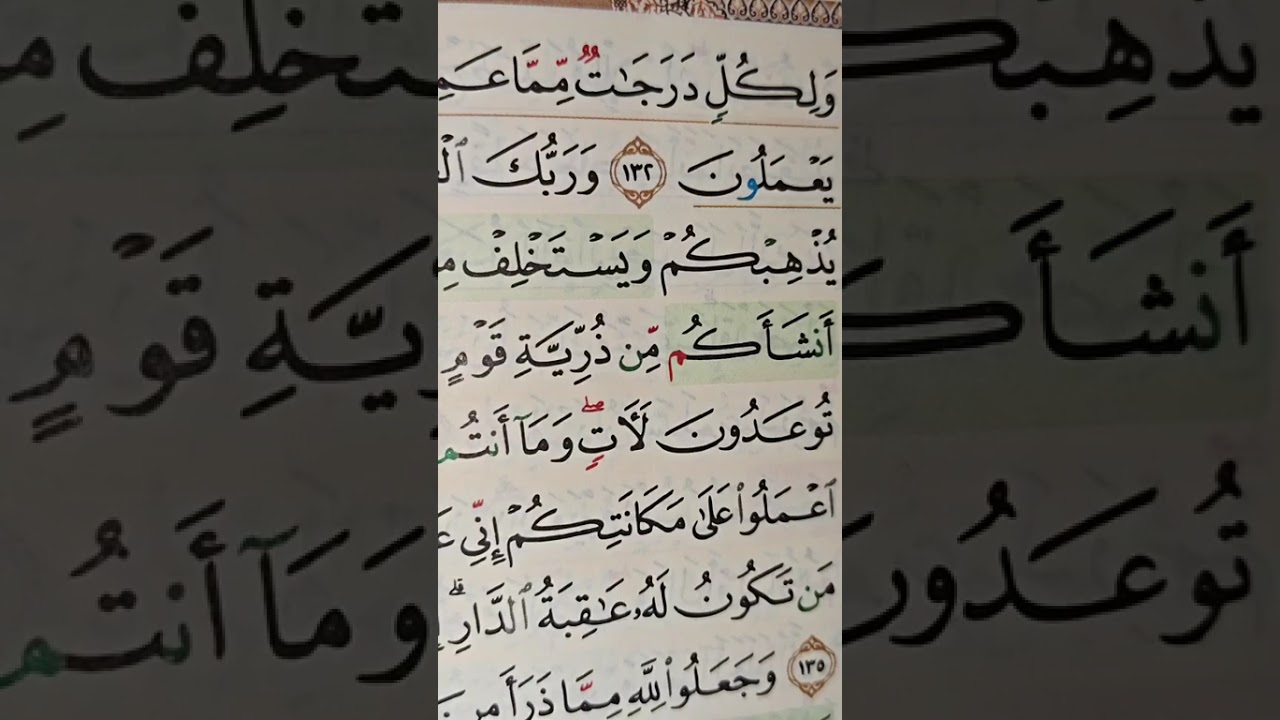 وَلِكُلٍّ دَرَجَٰتٌ مِّمَّا عَمِ
يَعْمَلُونَ ١٣٢ وَرَبُّكَ ٱلْ
يُذْهِبْكُمْ وَيَسْتَخْلِفْ مِ
أَنشَأَكُم مِّن ذُرِّيَّةِ قَوْمٍ
تُوعَدُونَ لَأٓتٍۖ وَمَآ أَنتُم
ٱعْمَلُوا۟ عَلَىٰ مَكَانَتِكُمْ إِنِّى عَ
مَن تَكُونُ لَهُۥ عَٰقِبَةُ ٱلدَّارِۗ إِ
١٣٥ وَجَعَلُوا۟ لِلَّهِ مِمَّا ذَرَأَ مِنَ